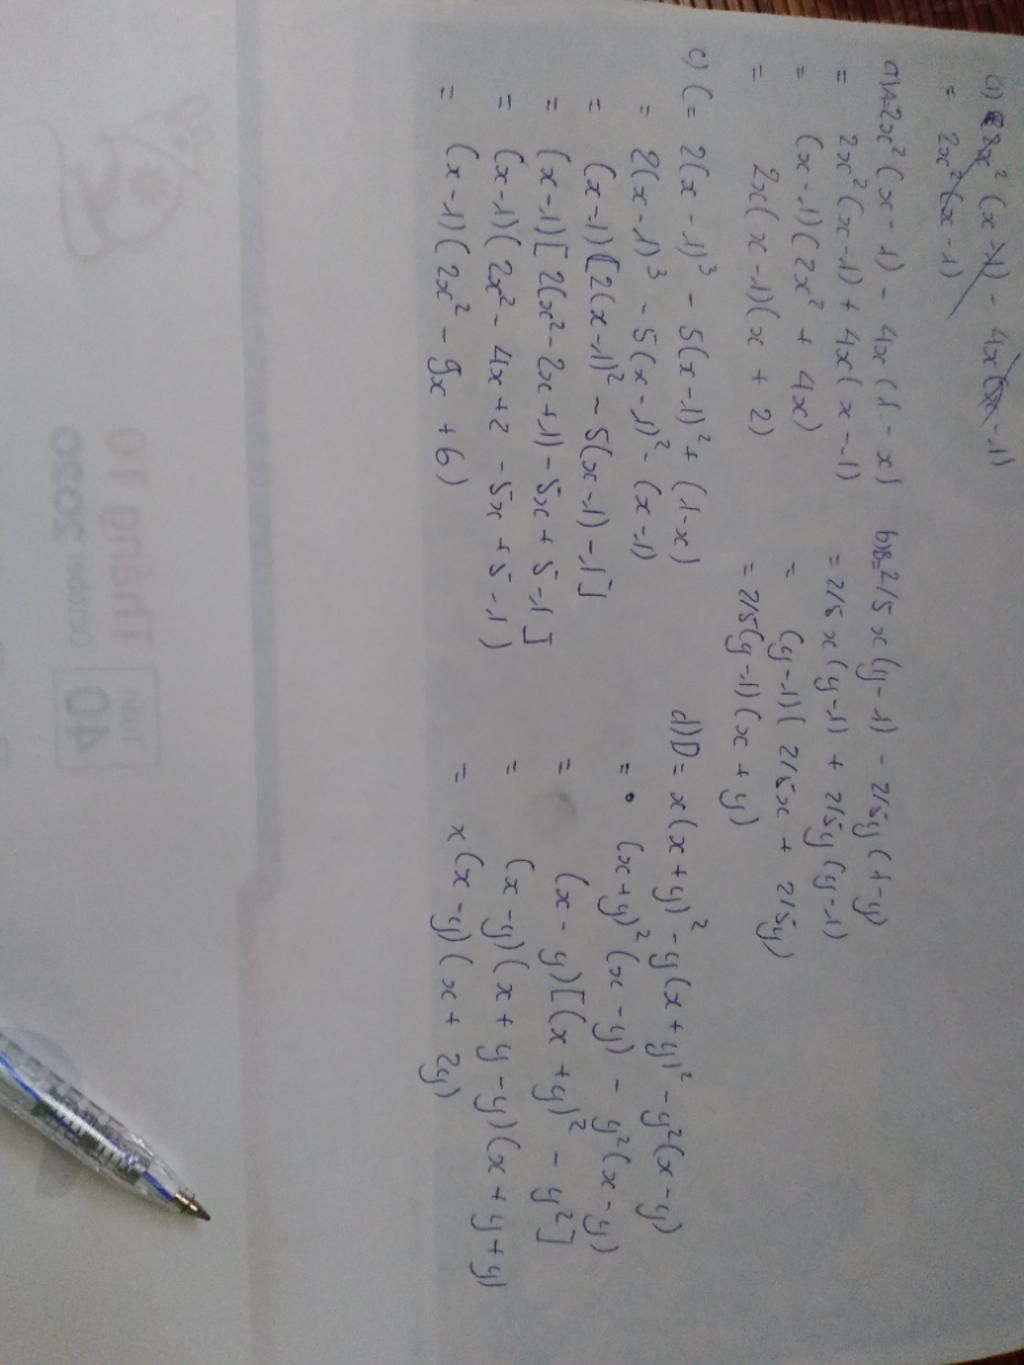 a) 2x² (x - 1) - 4x (x - 1)
= 2x² (x - 1)
a) A = 2x² (x - 1) - 4x (1 - x)
= 2x² (x - 1) + 4x (x - 1)
= (x - 1) (2x² + 4x)
= 2x (x - 1) (x + 2)
b) B = 2/5 x (y - 1) - 2/5y (1 - y)
= 2/5 x (y - 1) + 2/5y (y - 1)
= (y - 1) ( 2/5x + 2/5y)
= 2/5(y - 1) (x + y)
c) C = 2(x - 1)³ - 5(x - 1)² + (1 - x)
= 2(x - 1)³ - 5(x - 1)² - (x - 1)
= (x - 1) [2(x - 1)² - 5(x - 1) - 1]
= (x - 1) [2(x² - 2x + 1) - 5x + 5 - 1]
= (x - 1) (2x² - 4x + 2 - 5x + 5 - 1)
= (x - 1) (2x² - 9x + 6)
d) D = x(x + y)² - y(x + y)² - y²(x - y)
= (x + y)² (x - y) - y²(x - y)
= (x - y) [(x + y)² - y²]
= (x - y) (x + y - y) (x + y + y)
= x (x - y) (x + 2y)
Tháng 10
October 2020
Tuần
40